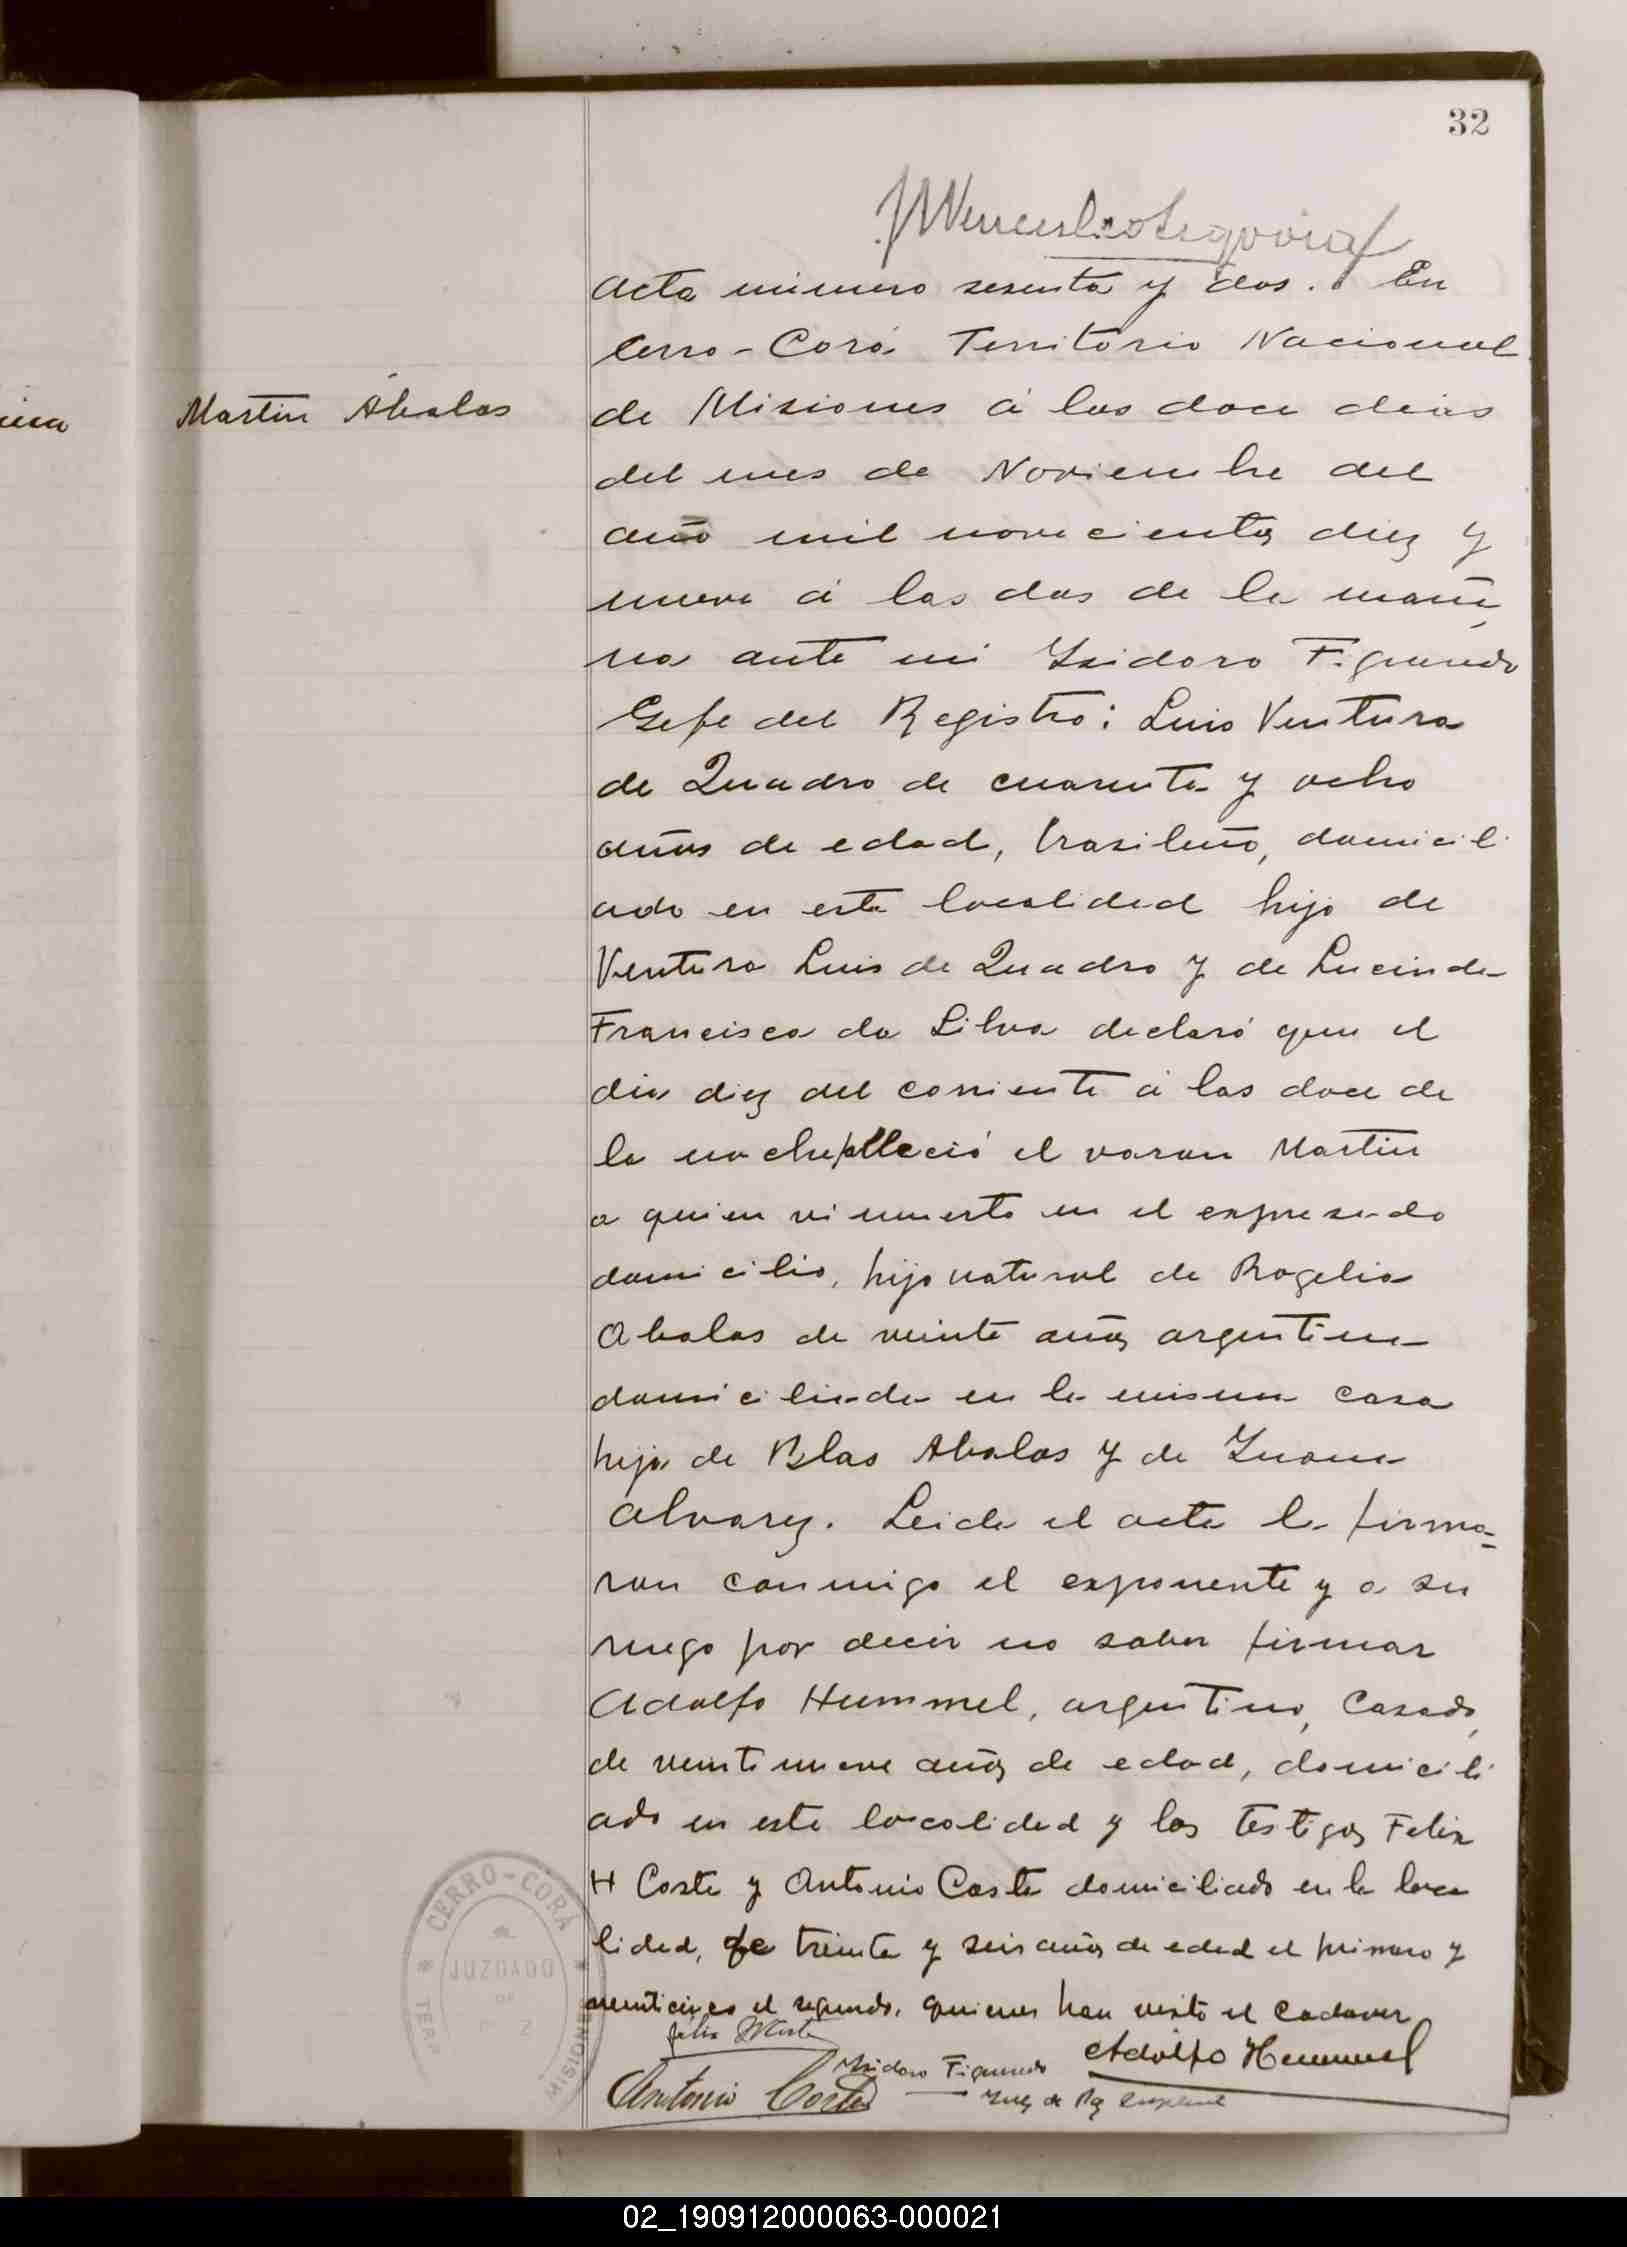 32
Wenceslao Segovia
Martin Abalos
Acta número sesenta y dos. En
Cerro-Corá Territorio Nacional
de Misiones á los doce dias
del mes de Noviembre del
año mil novecientos diez y
nueve á las dos de la maña
na ante mi Isidoro Figueredo
Gefe del Registro: Luis Ventura
de Quadro de cuarenta y ocho
años de edad, brasileño, domicili
ado en esta localidad hijo de
Ventura Luis de Quadro y de Lucinda
Francisca da Silva declaró que el
dia diez del corriente á las doce de
la noche falleció el varon Martin
a quien vi muerto en el expresado
domicilio, hijo natural de Rogelia
Abalos de veinte años argentina
domiciliada en la misma casa
hija de Blas Abalos y de Juana
Alvarez. Leida el acta la firma-
ron conmigo el exponente y a su
ruego por decir no saber firmar
Adolfo Hummel, argentino, Casado,
de veintinueve años de edad, domicili
ado en esta localidad y los testigos Felix
H Coste y Antonio Coste domiciliado en la loca
lidad, de treinta y seis años de edad el primero y
veinticinco el segundo, quienes han visto el cadaver
Felix H Coste
Isidoro Figueredo
Adolfo Hummel
Antonio Coste
Juez de Paz Suplente
CERRO-CORÁ
JUZGADO
DE
Z
TERR
MISIONES
02_190912000063-000021